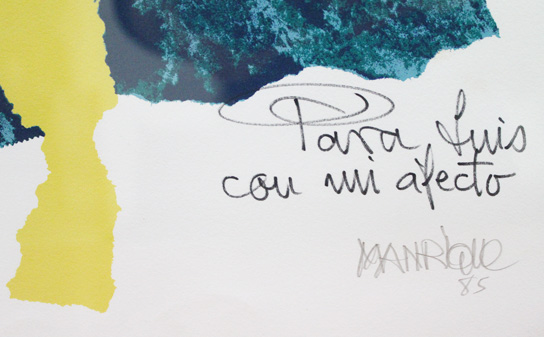 Para Luis
con mi afecto
MANRIQUE
85